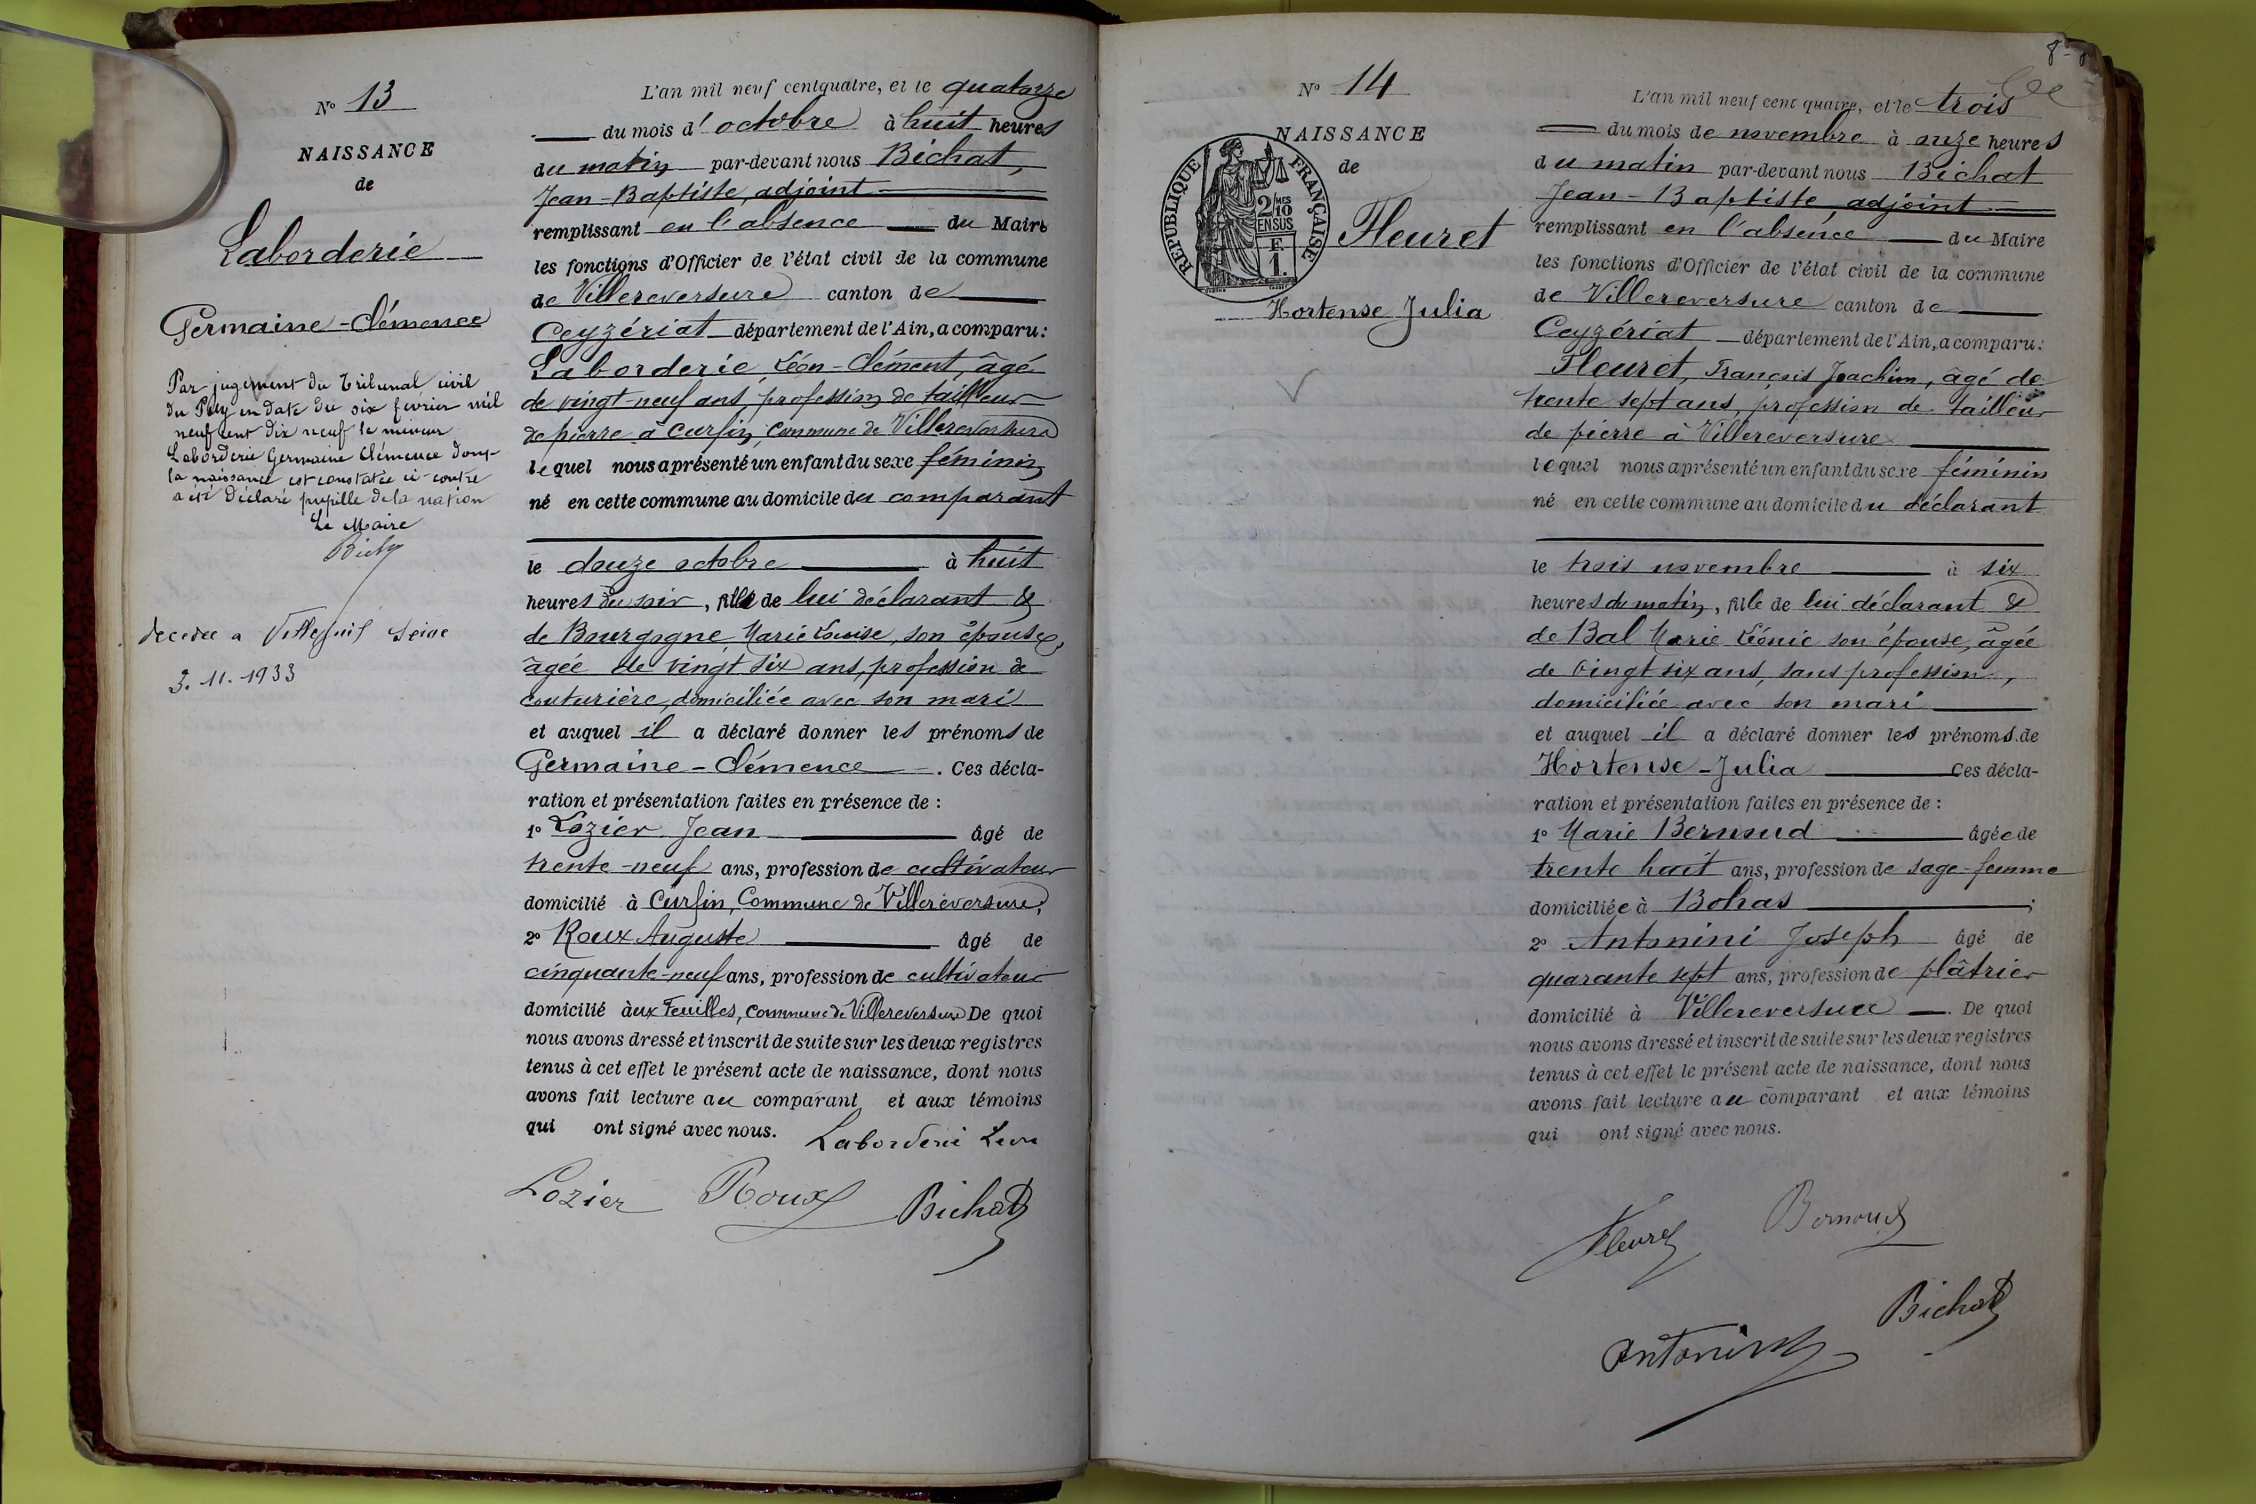 No 13
NAISSANCE
de
Laborderie
Germaine-Clémence
Par jugement du Tribunal civil
du Puy en date du six février mil
neuf cent dix neuf la mineure
Laborderie Germaine Clémence dont
la naissance est constatée ci-contre
a été déclaré pupille de la nation
Le Maire
décédée a Villejuif Seine
3.11.1933
L'an mil neuf cent quatre, et le quatorze
du mois d'octobre à huit heures
du matin par-devant nous Bichat,
Jean-Baptiste, adjoint
remplissant en l'absence du Maire
les fonctions d'Officier de l'état civil de la commune
de Villereversure canton de
Ceyzériat département de l'Ain, a comparu:
Laborderie, Léon-Clément, âgé
de vingt-neuf ans, profession de tailleur
de pierre à Curfin, Commune de Villereversure
lequel nous a présenté un enfant du sexe féminin
né en cette commune au domicile du comparant
le douze octobre à huit
heures du soir, fille de lui déclarant &
de Bourgogne, Marie Louise, son épouse,
âgée de vingt six ans, profession de
couturière, domiciliée avec son mari
et auquel il a déclaré donner les prénoms de
Germaine-Clémence. Ces décla-
ration et présentation faites en présence de:
1o Lozier Jean âgé de
trente-neuf ans, profession de cultivateur
domicilié à Curfin, Commune de Villereversure;
2o Roux Auguste âgé de
cinquante-neuf ans, profession de cultivateur
domicilié aux Feuilles, commune de Villereversure De quoi
nous avons dressé et inscrit de suite sur les deux registres
tenus à cet effet le présent acte de naissance, dont nous
avons fait lecture au comparant et aux témoins
qui ont signé avec nous.
Laborderie Léon
Lozier Roux Bichat
8
No 14
NAISSANCE
de
RÉPUBLIQUE FRANÇAISE
2/10 MES
EN SUS
F.
1.
Fleuret
Hortense Julia
L'an mil neuf cent quatre, et le trois
du mois de novembre à onze heures
du matin par-devant nous Bichat
Jean-Baptiste, adjoint
remplissant en l'absence du Maire
les fonctions d'Officier de l'état civil de la commune
de Villereversure canton de
Ceyzériat département de l'Ain, a comparu:
Fleuret, François Joachim, âgé de
trente sept ans, profession de tailleur
de pierre à Villereversure
lequel nous a présenté un enfant du sexe féminin
né en cette commune au domicile du déclarant
le trois novembre à six
heures du matin, fille de lui déclarant &
de Bal Marie Léonie son épouse, âgée
de vingt six ans, sans profession,
domiciliée avec son mari
et auquel il a déclaré donner les prénoms de
Hortense-Julia Ces décla-
ration et présentation faites en présence de:
1o Marie Bernoud âgée de
trente huit ans, profession de sage-femme
domiciliée à Bohas;
2o Antonini Joseph âgé de
quarante sept ans, profession de plâtrier
domicilié à Villereversure. De quoi
nous avons dressé et inscrit de suite sur les deux registres
tenus à cet effet le présent acte de naissance, dont nous
avons fait lecture au comparant et aux témoins
qui ont signé avec nous.
Fleuret Bernoud
Bichat
Antonini